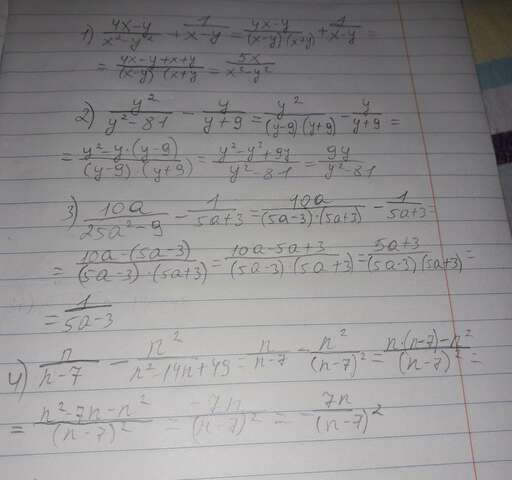 1) (4x-y)/(x²-y²) + 1/(x-y) = (4x-y)/((x-y)(x+y)) + 1/(x-y) =
= (4x-y+x+y)/((x-y)(x+y) = 5x/(x²-y²)
2) y²/(y²-81) - y/(y+9) = y²/((y-9)(y+9)) - y/(y+9) =
= (y²-y·(y-9))/((y-9)·(y+9)) = (y²-y²+9y)/(y²-81) = 9y/(y²-81)
3) 10a/(25a²-9) - 1/(5a+3) = 10a/((5a-3)·(5a+3)) - 1/(5a+3) =
= (10a-(5a-3))/((5a-3)·(5a+3)) = (10a-5a+3)/((5a-3)·(5a+3)) = (5a+3)/((5a-3)(5a+3)) =
= 1/(5a-3)
4) n/(n-7) - n²/(n²-14n+49) = n/(n-7) - n²/(n-7)² = (n·(n-7)-n²)/(n-7)² =
= (n²-7n-n²)/(n-7)² = -7n/(n-7)² = - 7n/(n-7)²